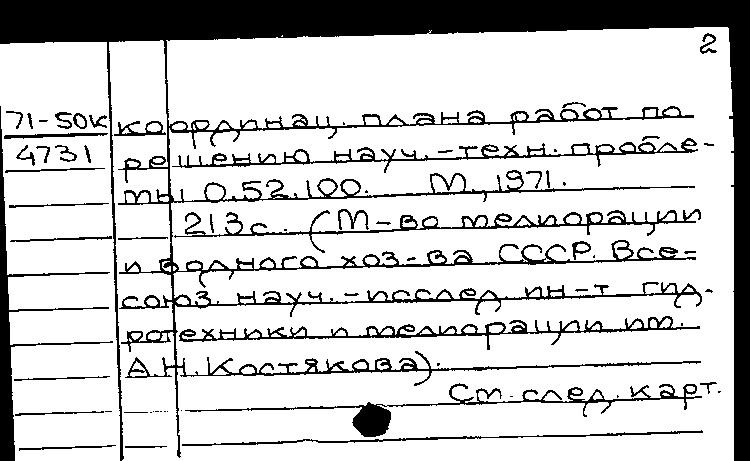 2
71-50к координац. плана работ по
4731 решению науч.-техн. пробле-
мы 0.52.100. М., 1971.
213с. (М-во мелиорации
и водного хоз-ва СССР. Все-
союз. науч.-исслед. ин-т гид-
ротехники и мелиорации им.
А.Н. Костякова).
См. след. карт.